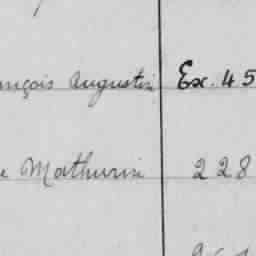 nçois Augustin Ex. 45
e Mathurin 228